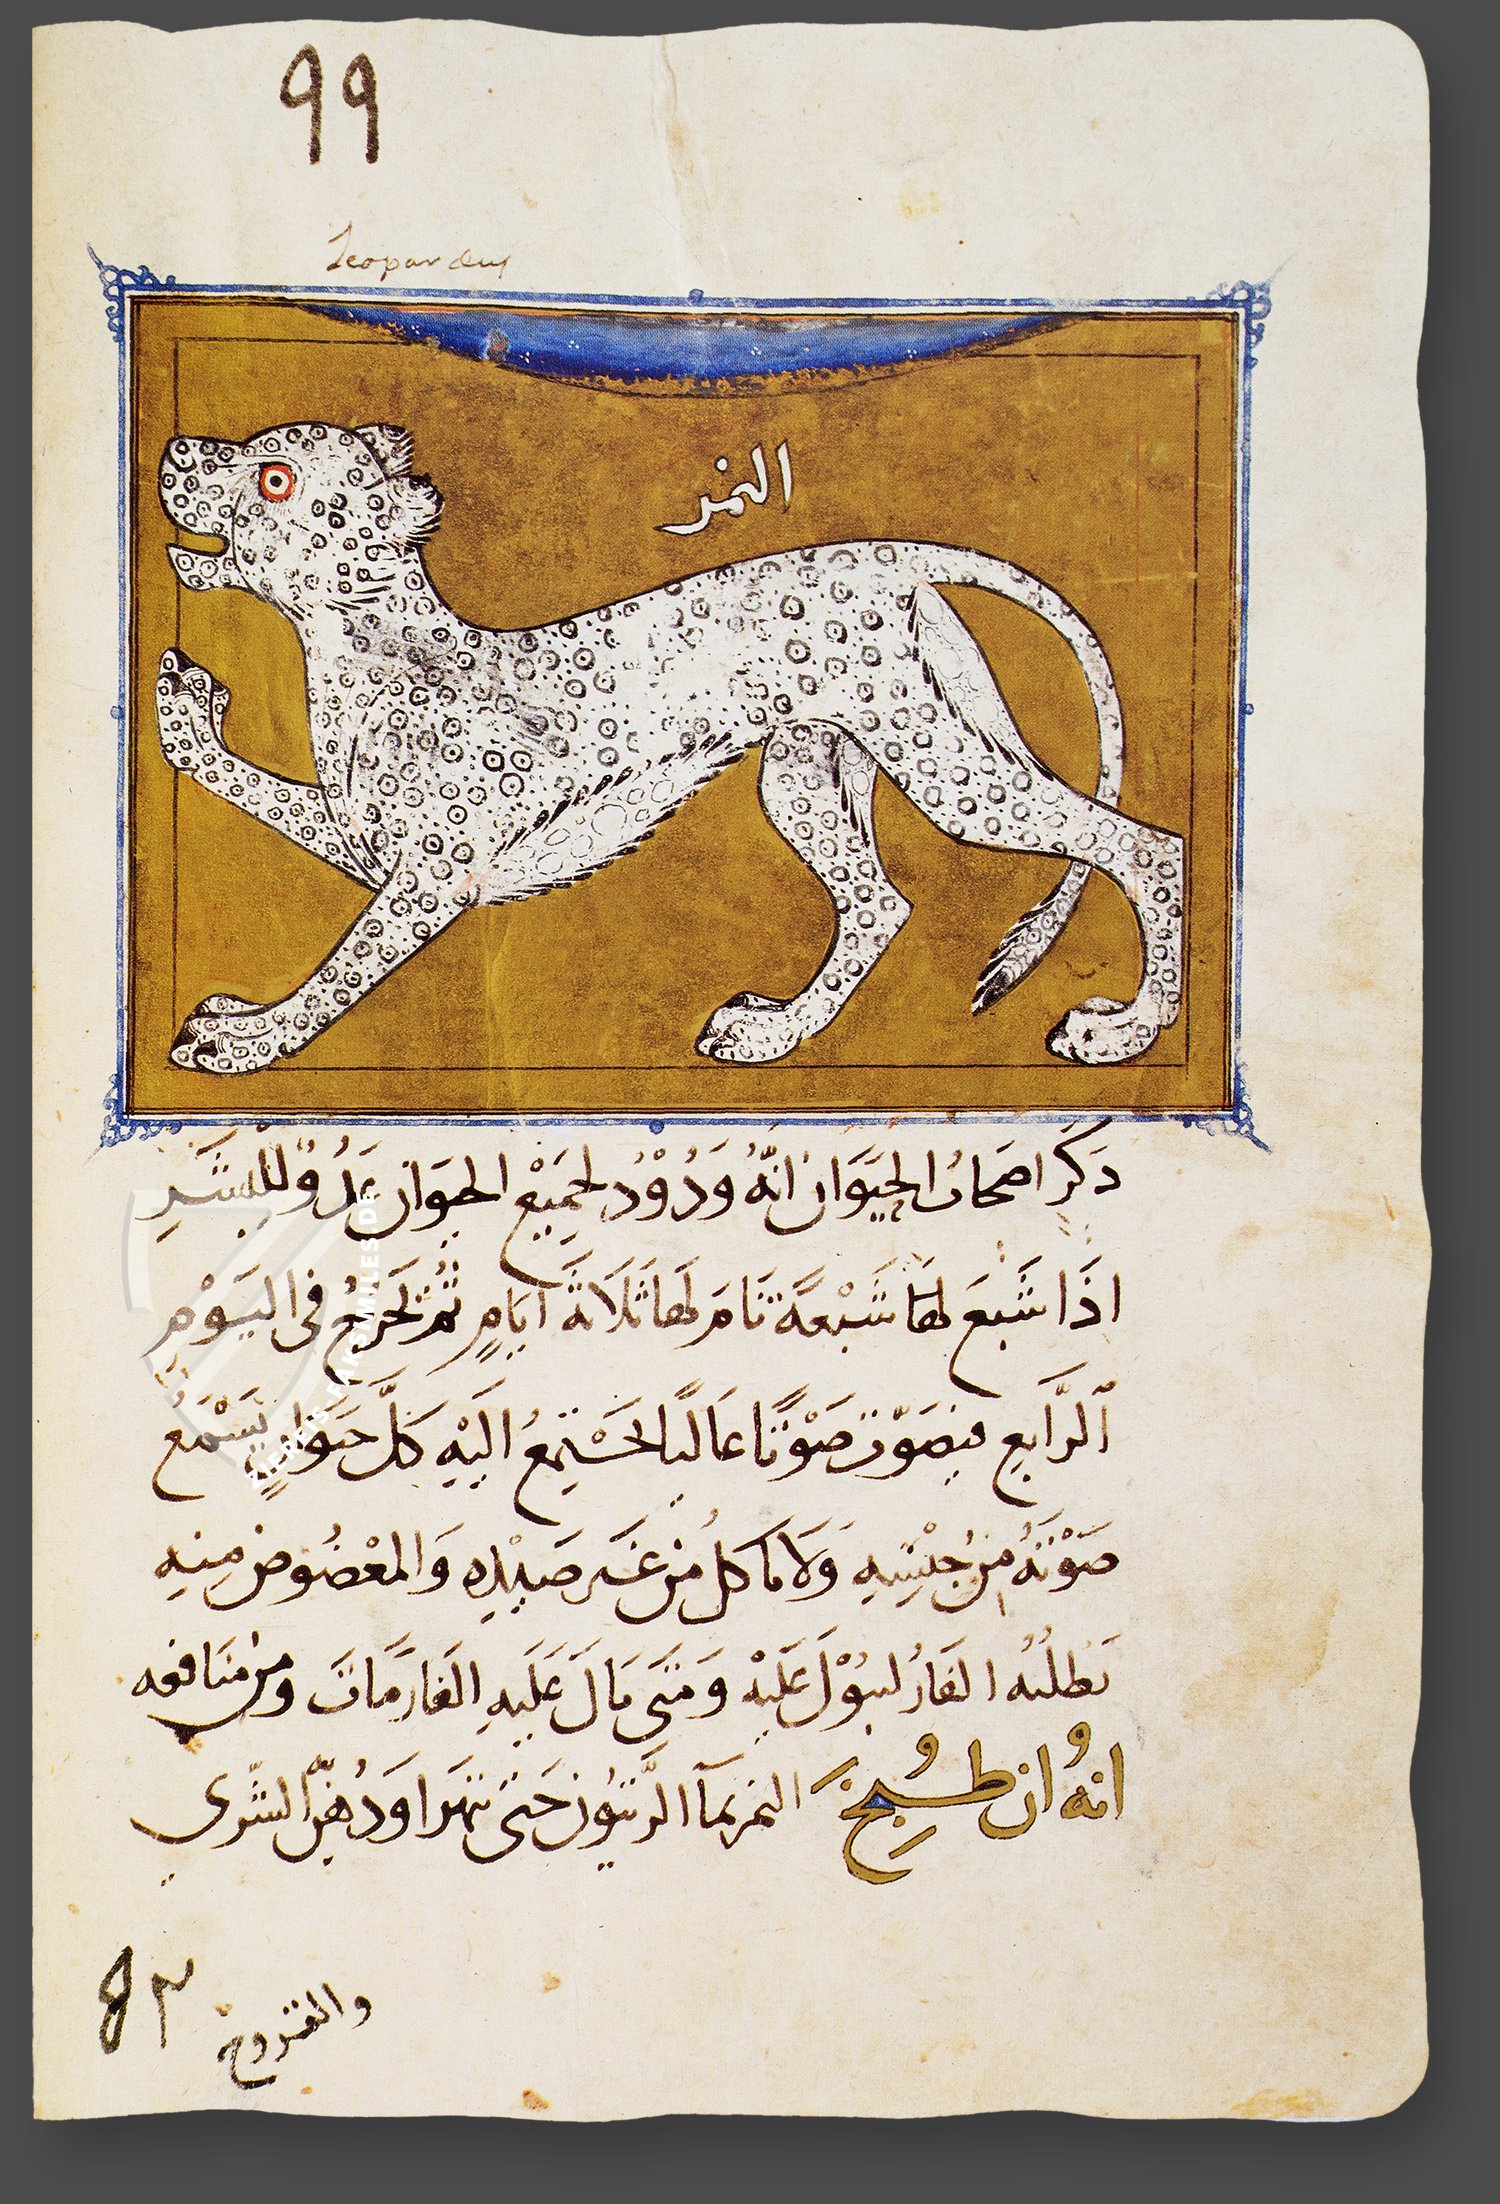 99
Leopardus
النمر
ذكر اصحاب الحيوان انَّهُ وَدُوْدُ لجَمِيْع الحيوَان عَدُوٌ للبَشَرِ
اذَا شَبعَ لهَا شَبْعَةً نَامَ لهَا ثَلَاثَةَ ايَامٍ ثُمَّ يَخرجُ في اليَوْم
الرَّابع فيصَوّت صَوْتًا عَاليًا يَجْتمِعُ اليَهِ كلَّ حيَوَانٍ يَسْمَعُ
صَوْتَهُ مِن جِنْسِهِ وَلَا ياكل مِن غَير صَيْدِهِ وَالمعْضُوض مِنه
يَطلبُه الفَارُ ليبُوْلَ عَليْه وَمتَى بَالَ عَلَيهِ الفَار مَاتَ ومن منَافعه
انهُ ان طُبخَ النمر بمَآ الزَّيتُون حَتى يتهَرا وَدُهنَ الشَّرى
والقروح